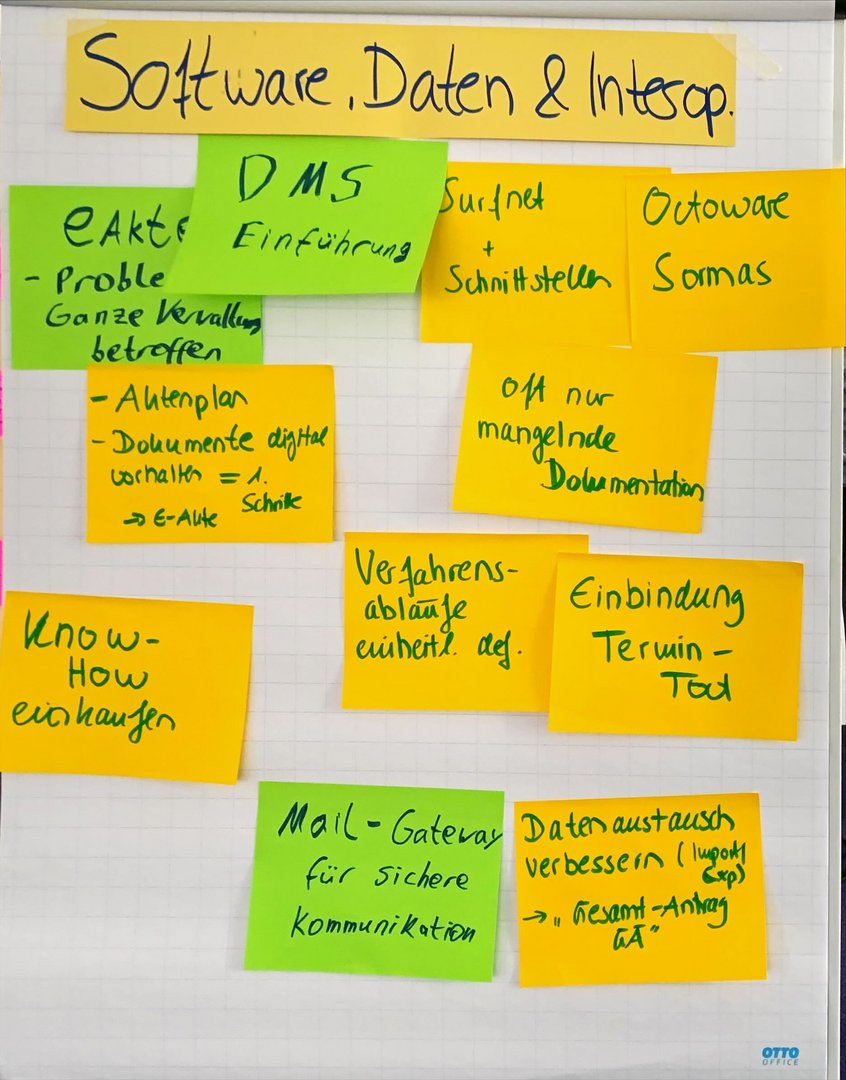 Software, Daten & Interop.
eAkte
- Proble
Ganze Verwaltung
betroffen
DMS
Einführung
Surfnet
+
Schnittstellen
Octoware
Sormas
- Aktenplan
- Dokumente digital
vorhalten = 1.
Schritt
→ E-Akte
oft nur
mangelnde
Dokumentation
Verfahrens-
abläufe
einheitl. def.
Einbindung
Termin-
Tool
Know-
How
einkaufen
Mail-Gateway
für sichere
Kommunikation
Datenaustausch
verbessern (Import/
Exp)
→ „Gesamt-Antrag
GÄ“
OTTO
OFFICE